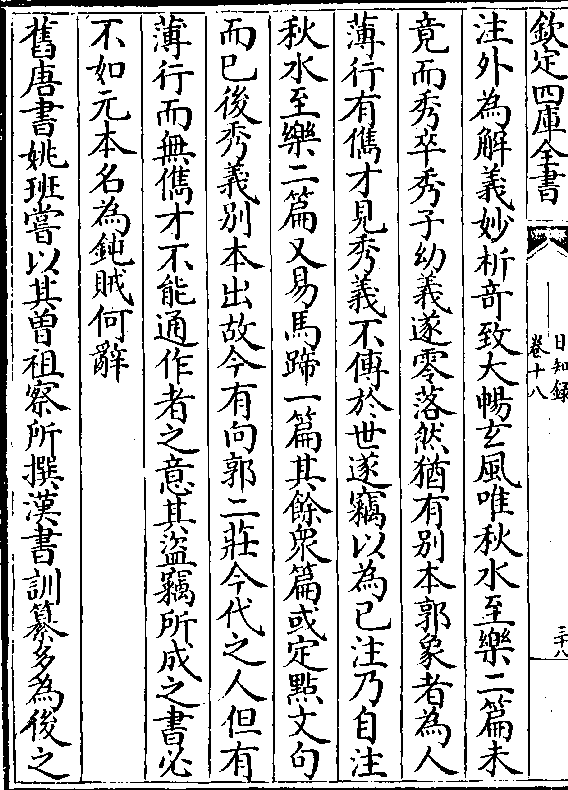 欽定四庫全書
日知錄
卷十八
二十八
注外為解義妙析竒致大暢𤣥風唯秋水至樂二篇未
竟而秀卒秀子幼義遂零落然猶有别本郭象者為人
薄行有儁才見秀義不傳於世遂竊以為己注乃自注
秋水至樂二篇又易馬蹄一篇其餘衆篇或定㸃文句
而已後秀義别本出故今有向郭二莊今代之人但有
薄行而無儁才不能通作者之意其盜竊所成之書必
不如元本名為鈍賊何辭
舊唐書姚班嘗以其曽祖察所撰漢書訓纂多為後之